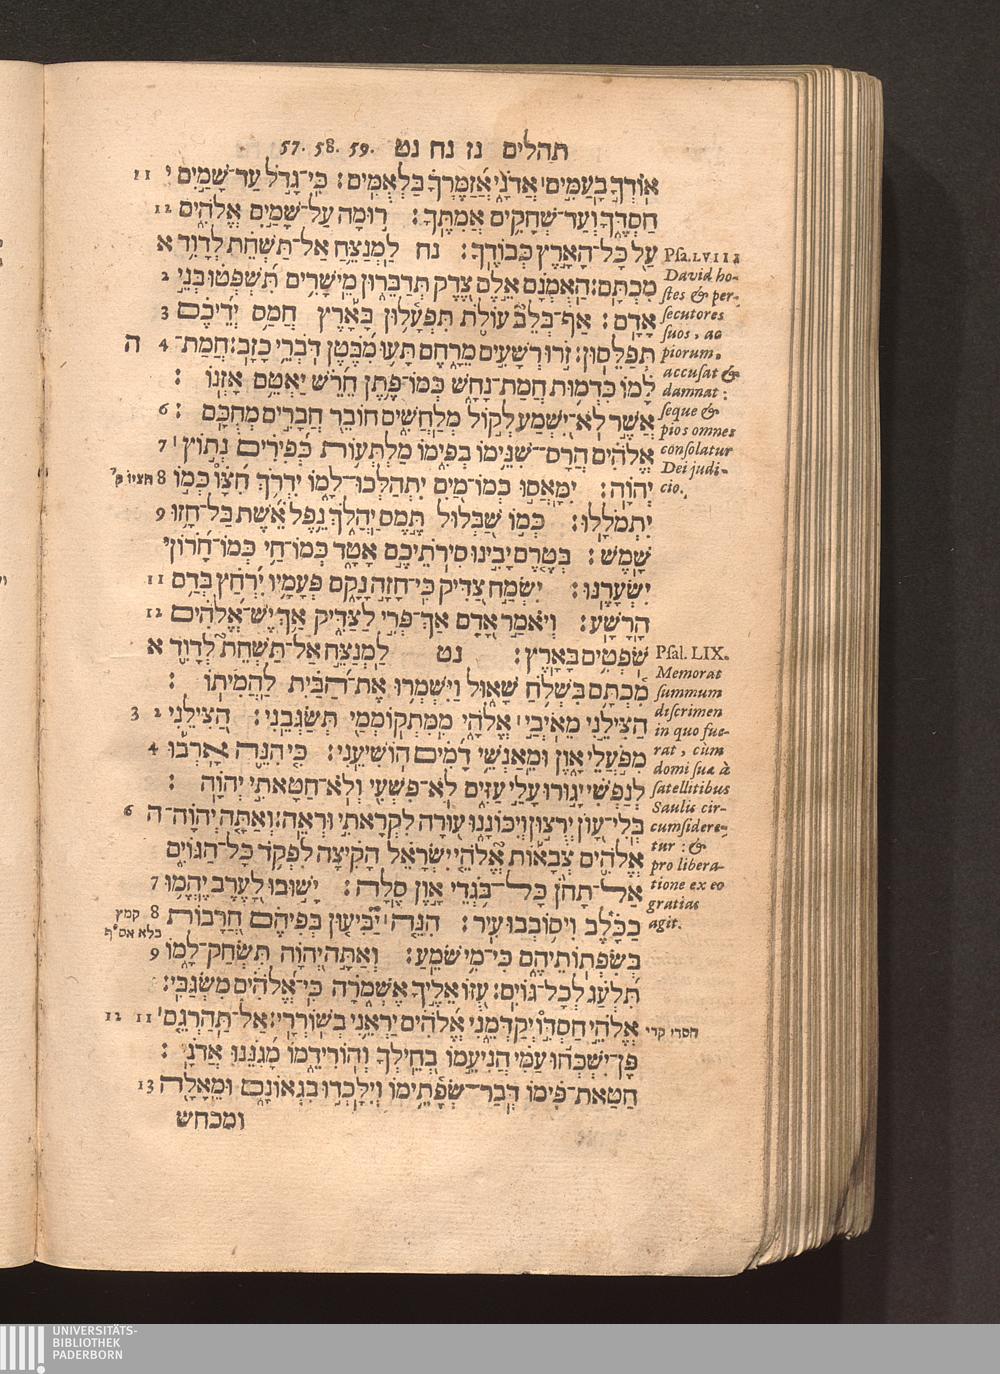 תהלים נז נח נט 57. 58. 59.
אוֹדְךָ בָעַמִּים אֲדֹנָי אֲזַמֶּרְךָ בַּלְאֻמִּים: כִּי־גָדֹל עַד־שָׁמַיִם י 11
חַסְדֶּךָ וְעַד־שְׁחָקִים אֲמִתֶּךָ: רוּמָה עַל־שָׁמַיִם אֱלֹהִים 12
עַל כָּל־הָאָרֶץ כְּבוֹדֶךָ: נח לַמְנַצֵּחַ אַל־תַּשְׁחֵת לְדָוִד א
מִכְתָּם: הַאֻמְנָם אֵלֶם צֶדֶק תְּדַבֵּרוּן מֵישָׁרִים תִּשְׁפְּטוּ בְּנֵי 2
אָדָם: אַף־בְּלֵב עוֹלֹת תִּפְעָלוּן בָּאָרֶץ חֲמַס יְדֵיכֶם 3
תְּפַלֵּסוּן: זֹרוּ רְשָׁעִים מֵרָחֶם תָּעוּ מִבֶּטֶן דֹּבְרֵי כָזָב: חֲמַת־ 4 ה
לָמוֹ כִּדְמוּת חֲמַת־נָחָשׁ כְּמוֹ־פֶתֶן חֵרֵשׁ יַאְטֵם אָזְנוֹ:
אֲשֶׁר לֹא־יִשְׁמַע לְקוֹל מְלַחֲשִׁים חוֹבֵר חֲבָרִים מְחֻכָּם: 6
אֱלֹהִים הֲרָס־שִׁנֵּימוֹ בְּפִימוֹ מַלְתְּעוֹת כְּפִירִים נְתוֹץ 7
יְהוָה: יִמָּאֲסוּ כְמוֹ־מַיִם יִתְהַלְּכוּ־לָמוֹ יִדְרֹךְ חִצָּו כְּמוֹ 8 חציו ק'
יִתְמֹלָלוּ: כְּמוֹ שַׁבְּלוּל תֶּמֶס יַהֲלֹךְ נֵפֶל אֵשֶׁת בַּל־חָזוּ 9
שָׁמֶשׁ: בְּטֶרֶם יָבִינוּ סִירֹתֵיכֶם אָטָד כְּמוֹ־חַי כְּמוֹ־חָרוֹן י
יִשְׂעָרֶנּוּ: יִשְׂמַח צַדִּיק כִּי־חָזָה נָקָם פְּעָמָיו יִרְחַץ בְּדַם 11
הָרָשָׁע: וְיֹאמַר אָדָם אַךְ־פְּרִי לַצַּדִּיק אַךְ יֵשׁ־אֱלֹהִים 12
שֹׁפְטִים בָּאָרֶץ: נט לַמְנַצֵּחַ אַל־תַּשְׁחֵת לְדָוִד א
מִכְתָּם בִּשְׁלֹחַ שָׁאוּל וַיִּשְׁמְרוּ אֶת־הַבַּיִת לַהֲמִיתוֹ:
הַצִּילֵנִי מֵאֹיְבַי אֱלֹהָי מִמִּתְקוֹמְמַי תְּשַׂגְּבֵנִי: הַצִּילֵנִי 2 3
מִפֹּעֲלֵי אָוֶן וּמֵאַנְשֵׁי דָמִים הוֹשִׁיעֵנִי: כִּי הִנֵּה אָרְבוּ 4
לְנַפְשִׁי יָגוּרוּ עָלַי עַזִּים לֹא־פִשְׁעִי וְלֹא־חַטָּאתִי יְהוָה:
בְּלִי־עָוֹן יְרֻצוּן וְיִכּוֹנָנוּ עוּרָה לִקְרָאתִי וּרְאֵה: וְאַתָּה יְהוָה־ ה 6
אֱלֹהִים צְבָאוֹת אֱלֹהֵי יִשְׂרָאֵל הָקִיצָה לִפְקֹד כָּל־הַגּוֹיִם
אַל־תָּחֹן כָּל־בֹּגְדֵי אָוֶן סֶלָה: יָשׁוּבוּ לָעֶרֶב יֶהֱמוּ 7
כַכָּלֶב וִיסוֹבְבוּ עִיר: הִנֵּה יַבִּיעוּן בְּפִיהֶם חֲרָבוֹת 8 קמץ
בלא אס"ף
בְּשִׂפְתוֹתֵיהֶם כִּי־מִי שֹׁמֵעַ: וְאַתָּה יְהוָה תִּשְׂחַק־לָמוֹ 9
תִּלְעַג לְכָל־גּוֹיִם: עֻזּוֹ אֵלֶיךָ אֶשְׁמֹרָה כִּי־אֱלֹהִים מִשְׂגַּבִּי:
אֱלֹהֵי חַסְדּוֹ יְקַדְּמֵנִי אֱלֹהִים יַרְאֵנִי בְשֹׁרְרָי: אַל־תַּהַרְגֵם י 11 12
חסדי קרי
פֶּן־יִשְׁכְּחוּ עַמִּי הֲנִיעֵמוֹ בְחֵילְךָ וְהוֹרִידֵמוֹ מָגִנֵּנוּ אֲדֹנָי:
חַטַּאת־פִּימוֹ דְּבַר־שְׂפָתֵימוֹ וְיִלָּכְדוּ בִגְאוֹנָם וּמֵאָלָה 13
ומכחש
Psa. LVIII.
David ho-
stes & per-
secutores
suos, ac
piorum,
accusat &
damnat:
seque &
pios omnes
consolatur
Dei judi-
cio.
Psal. LIX.
Memorat
summum
discrimen
in quo fue-
rat, cùm
domi suæ à
satellitibus
Saulis cir-
cumsidere-
tur: &
pro libera-
tione ex eo
gratias
agit.
UNIVERSITÄTS-
BIBLIOTHEK
PADERBORN